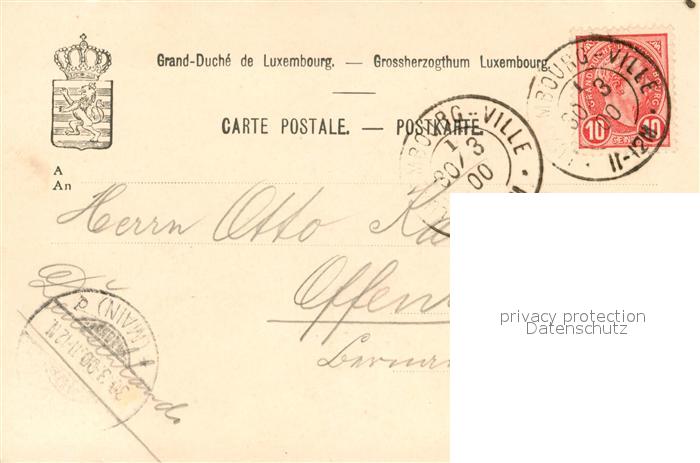 Grand-Duché de Luxembourg. — Grossherzogthum Luxembourg.
CARTE POSTALE. — POSTKARTE.
BOURG-VILLE
1
30/3
00
11-12
10 10
CEN
MBOURG-VILLE
1
30/3
00
A
An
Herrn Otto
Offen
privacy protection
Datenschutz
(MAIN)
3.00.11-12
Deutschland